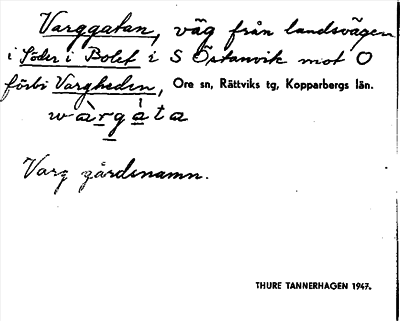 Varggatan, väg från landsvägen
i Söder i Bolet i S Östanvik mot O
förbi Vargheden, Ore sn, Rättviks tg, Kopparbergs län.
wàrgàta
Varg gårdsnamn.
THURE TANNERHAGEN 1947.